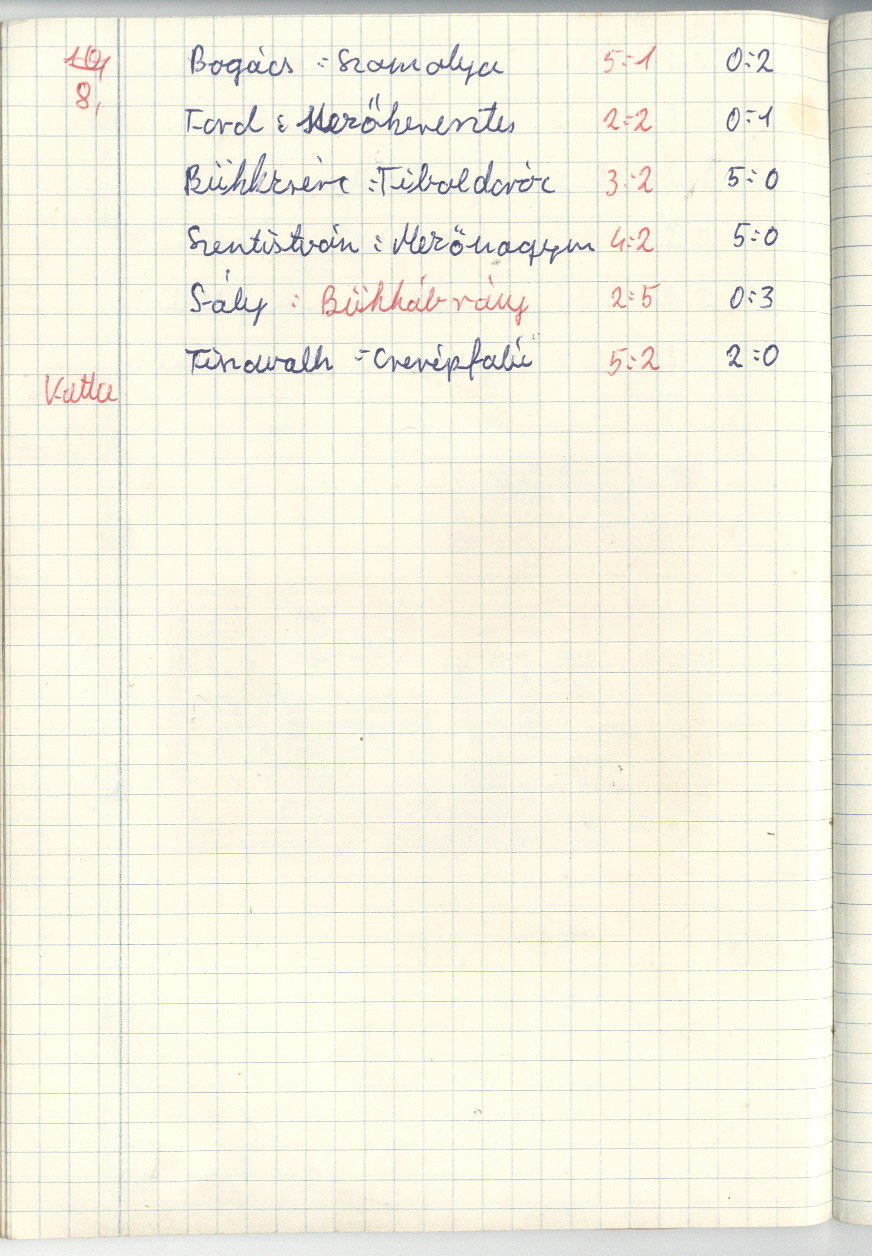 10, Bogács : Szomolya 5:1 0:2
8, Tard : Mezőkeresztes 2:2 0:1
Bükkzsérc : Tibolddaróc 3:2 5:0
Szentistván : Mezőnagym 4:2 5:0
Sály : Bükkábrány 2:5 0:3
Tiszavalk : Cserépfalu 5:2 2:0
Vatta